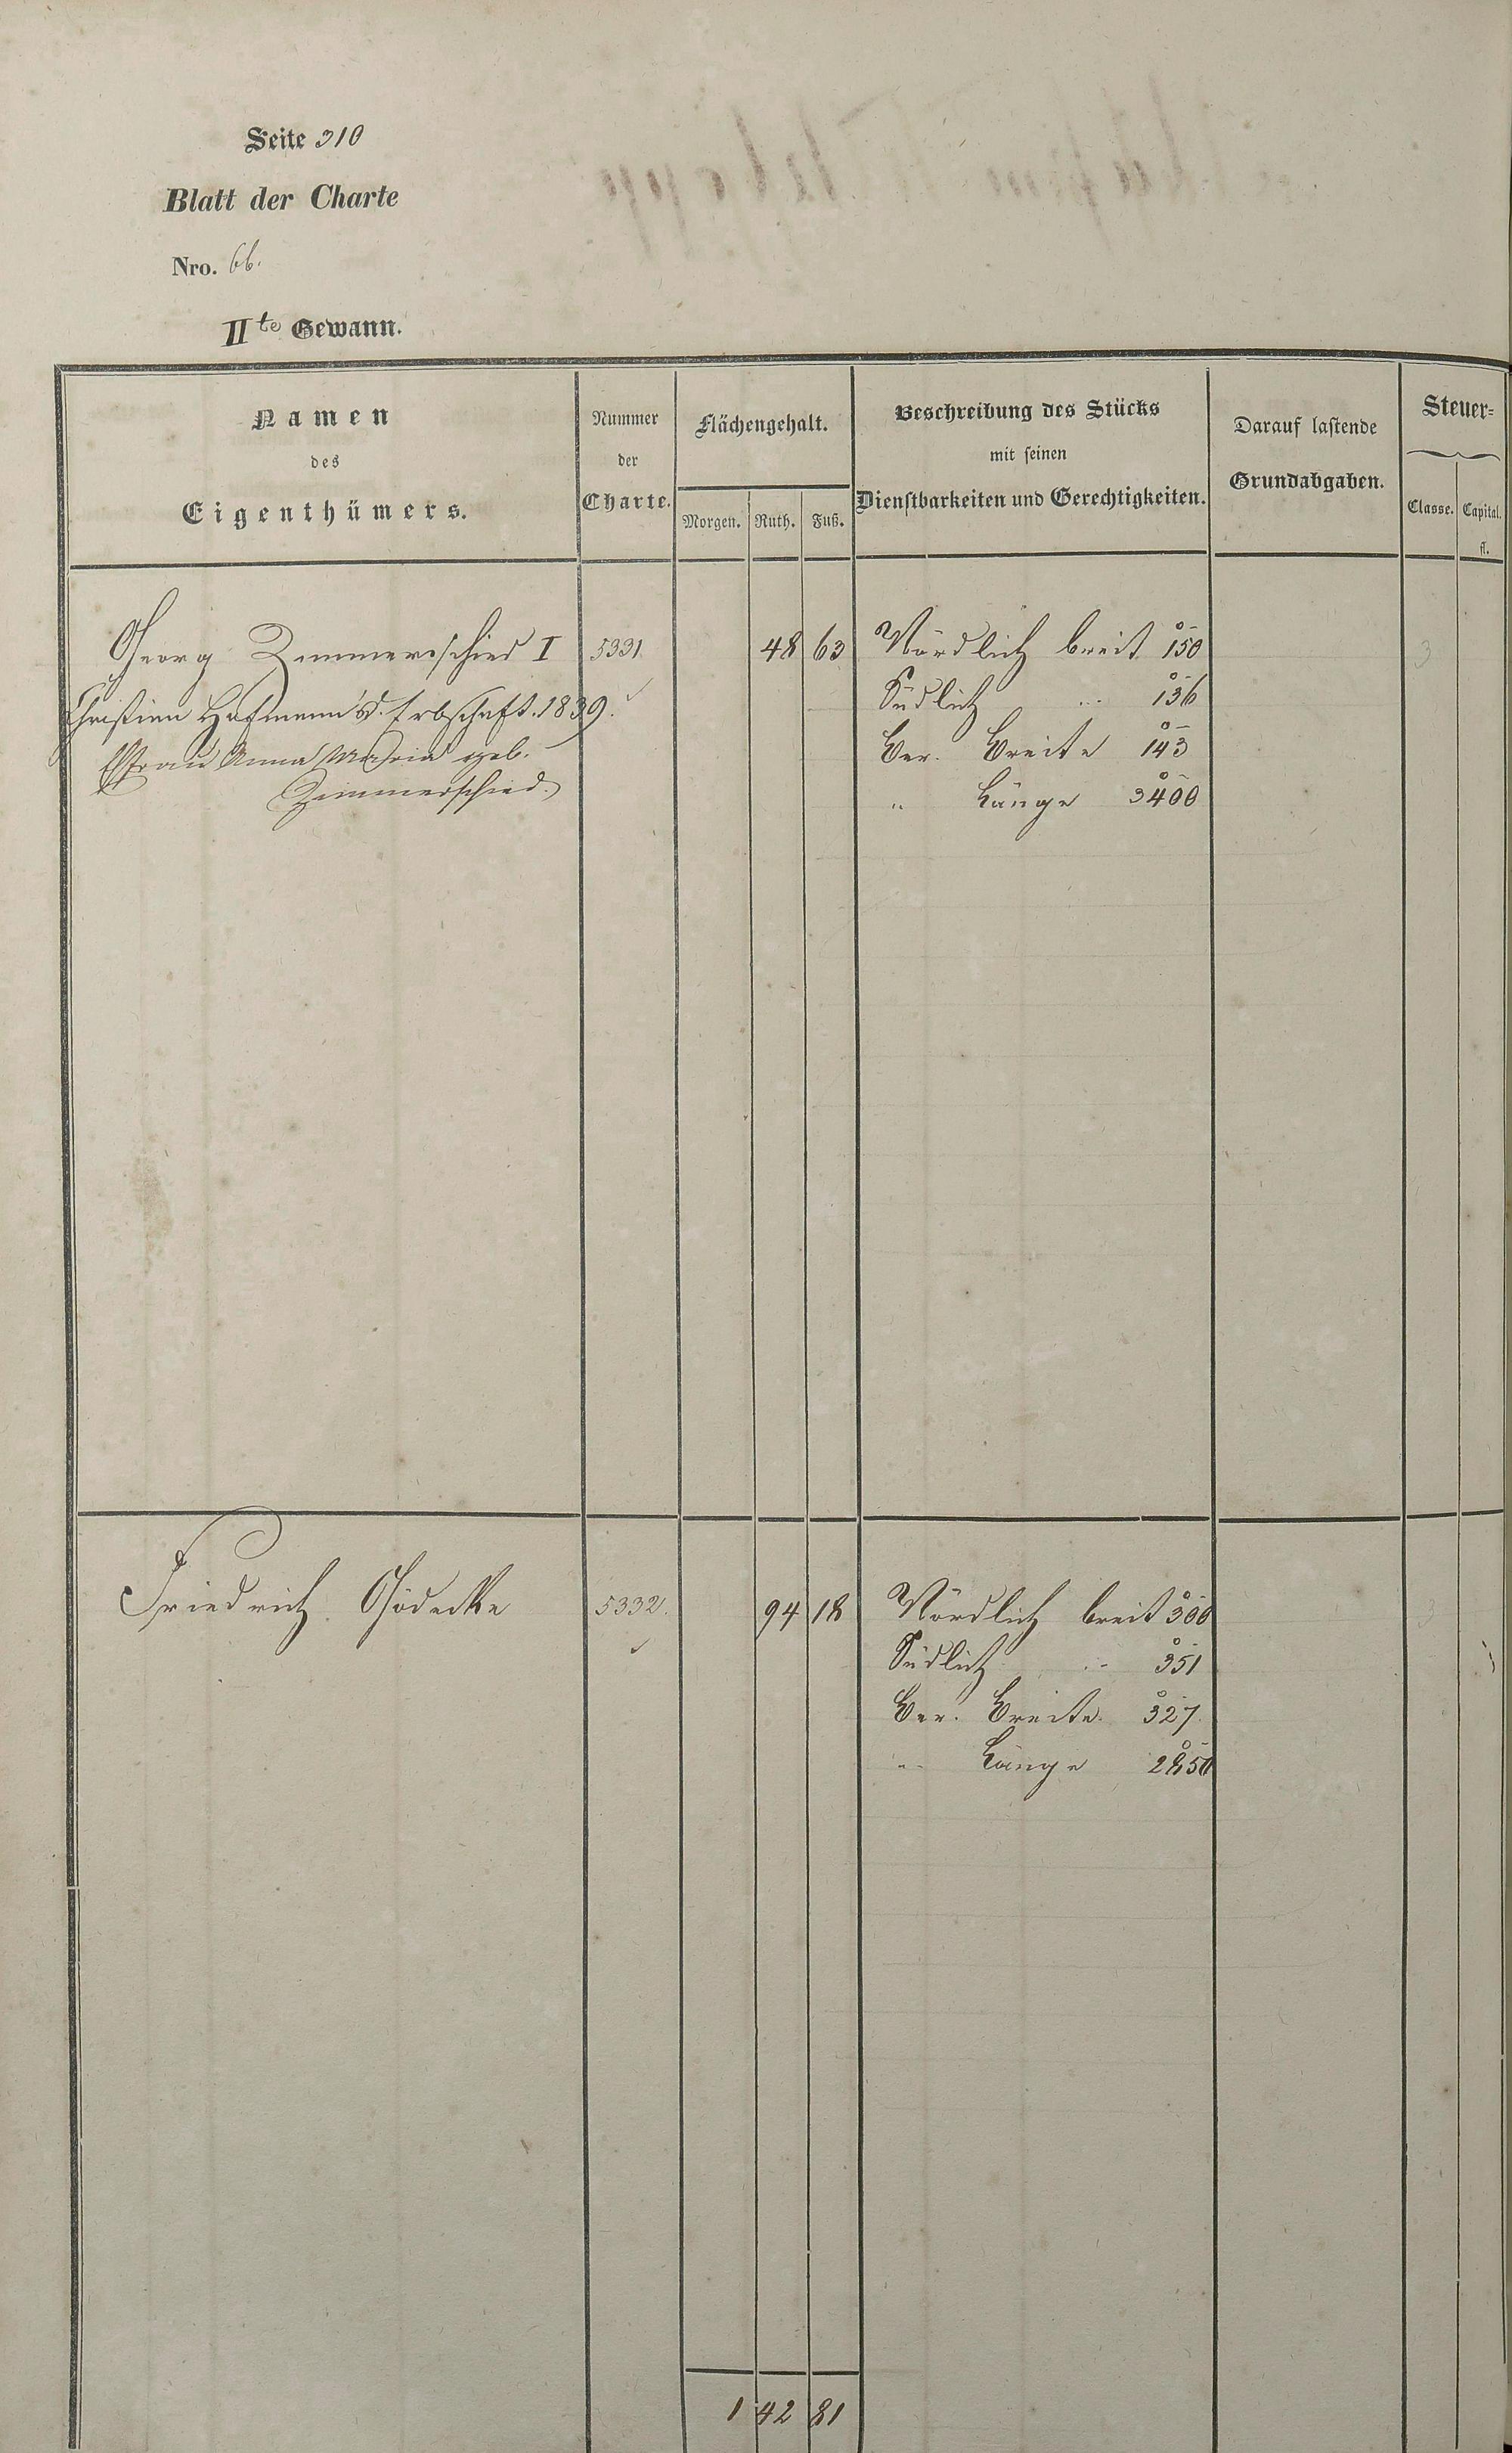 Seite 310
Blatt der Charte
Nro. 66.
IIte Gewann.
Namen
des
Eigenthümers.
Nummer
der
Charte.
Flächengehalt.
Morgen. Ruth. Fuß.
Beschreibung des Stücks
mit seinen
Dienstbarkeiten und Gerechtigkeiten.
Darauf lastende
Grundabgaben.
Steuer=
Classe. Capital.
fl.
Georg Zimmerschied I 5331. 48 63 Nördlich breit 150 3
Christian Hofmann d. Erbschaft. 1839. Südlich " 136
Frau Anna Maria geb. Ber. Breite 143
Zimmerschied. " Länge 3400
Friedrich Gödecke 5332. 94 18 Nördlich breit 300 3
Südlich " 351
Ber. Breite 327
" Länge 2850
1 42 81